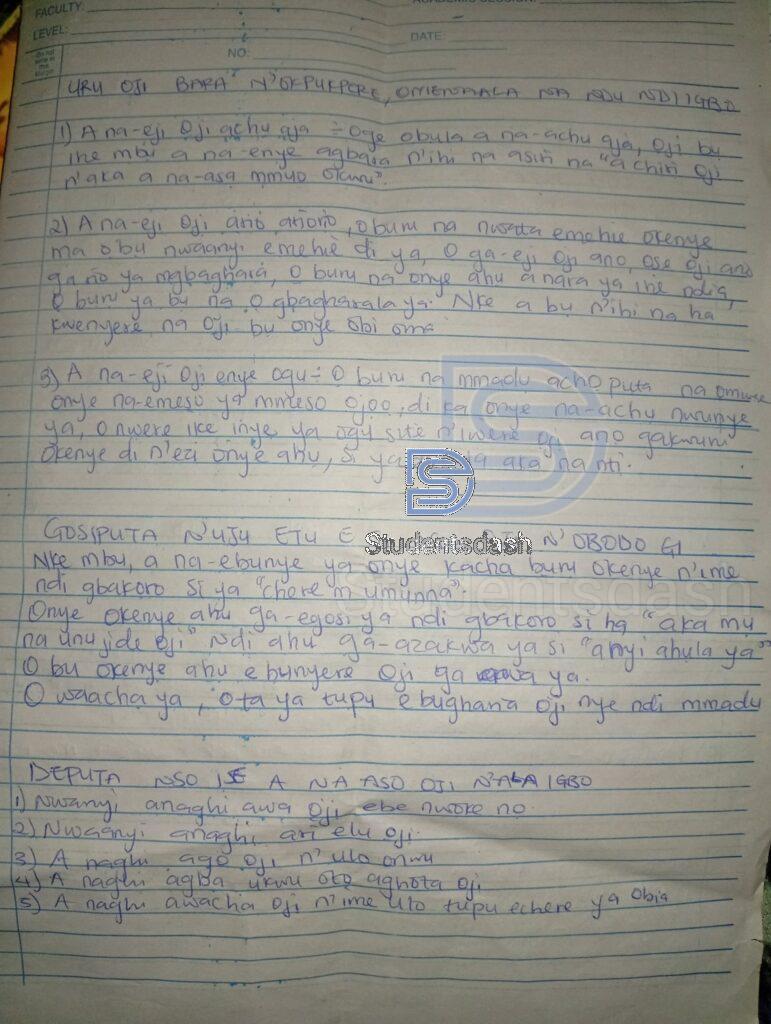 FACULTY:
ACADEMIC SESSION:
LEVEL:
DATE:
NO:
do not write in this margin
URU OJI BARA N'OKPUKPERE, OMENAALA NA NDU NDI IGBO
1) A na-eji Oji achu aja ÷ oge obula a na-achu aja, Oji bu
ihe mbu a na-enye agbara n'ihi na asiri na "a chiri Oji
n'aka a na-asa mmuo okwu".
2) A na-eji Oji ario ariorio, o buru na nwata emehie okenye
ma obu nwaanyi emehie di ya, O ga-eji Oji ano, ose oji ano
ga rio ya mgbaghara, O buru na onye ahu anara ya ihe ndia,
O buru ya bu na O gbagharala ya. Nke a bu n'ihi na ha
kwenyere na Oji bu onye obi oma
3) A na-eji Oji enye ogu ÷ O buru na mmadu achoputa na
onye na-emeso ya mmeso ojoo, di ka onye na-achu nwunye
ya, O nwere ike inye ya ogu site n'iwere oji ano gakwuru
okenye di n'ezi onye ahu, si ya aka na nti.
GOSIPUTA N'UJU ETU E N'OBODO GI
Studentsdash
Nke mbu, a na-ebunye ya onye kacha buru okenye n'ime
ndi gbakoro si ya "chere m umunna".
Studentsdash
Onye okenye ahu ga-egosi ya ndi gbakoro si ha "aka mu
na unu jide oji" Ndi ahu ga-azakwa ya si "anyi ahula ya"
O bu okenye ahu ebunyere Oji ga ya.
O waacha ya, o ta ya tupu ebughana oji nye ndi mmadu
DEPUTA NSO ISE A NA ASO OJI N'ALA IGBO
1) Nwanyi anaghi awa Oji ebe nwoke no.
2) Nwaanyi anaghi ari elu oji.
3) A naghi ago Oji n'ulo onwu
4) A naghi agba ukwu oto aghota oji
5) A naghi awacha oji n'ime ulo tupu echere ya obia